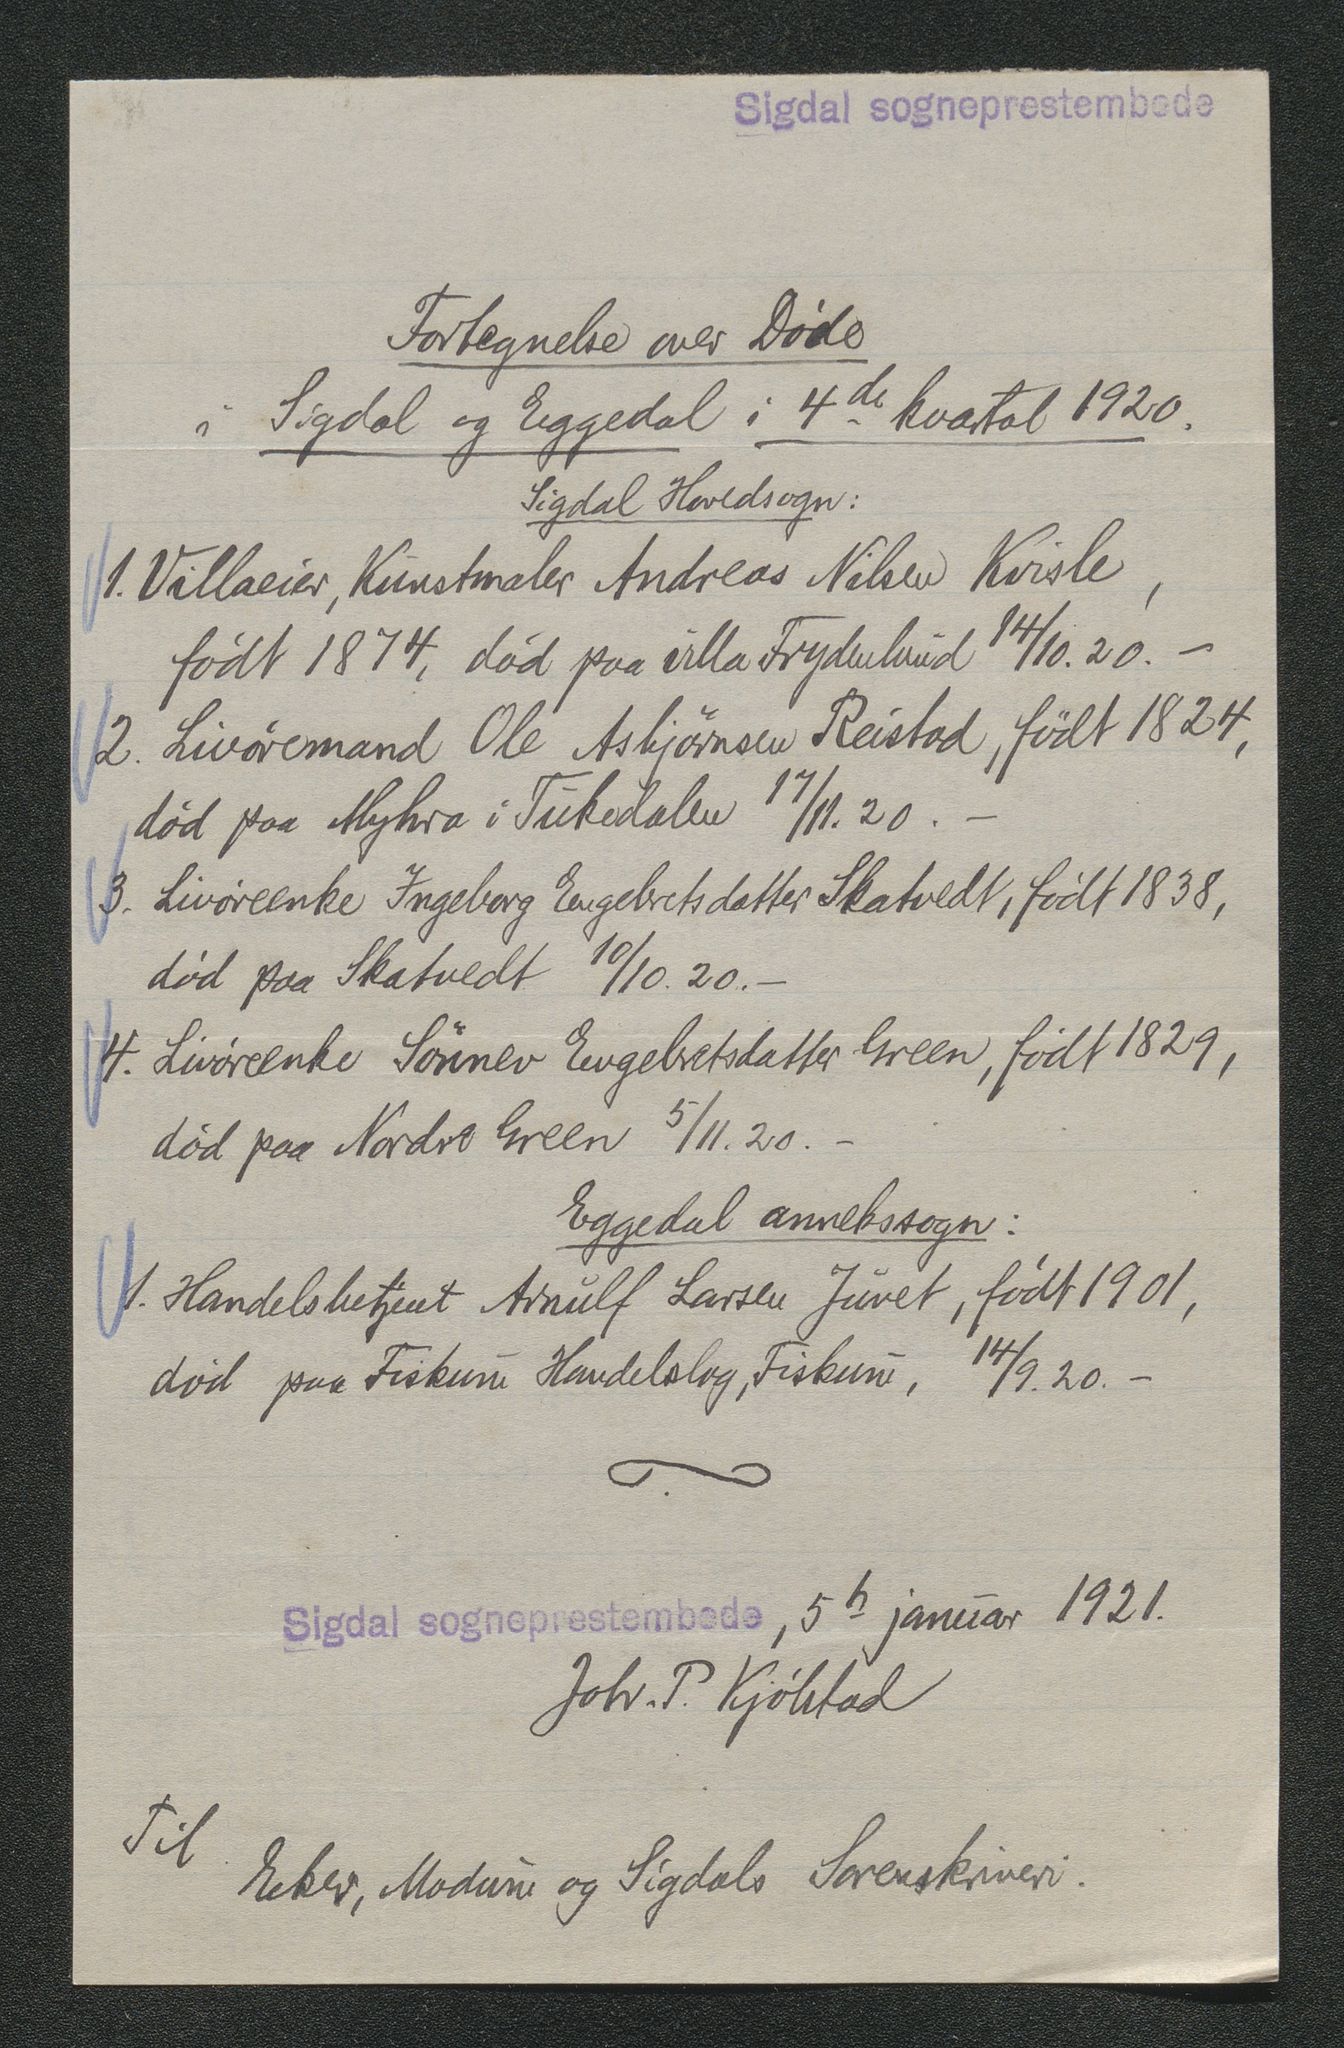 Sigdal sogneprestembede
Fortegnelse over Døde
i Sigdal og Eggedal i 4de kvartal 1920.
Sigdal Hovedsogn:
1. Villaeier, Kunstmaler Andreas Nilsen Kvisle,
født 1874, død paa villa Frydenlund 14/10.20. –
2. Livøremand Ole Asbjørnsen Reistad, født 1824,
død paa Myhra i Tukedalen 17/11.20. –
3. Livøreenke Ingeborg Engebretsdatter Skatvedt, født 1838,
død paa Skatvedt 10/10.20. –
4. Livøreenke Sönnev Engebretsdatter Green, født 1829,
død paa Nordre Green 5/11.20. –
Eggedal annekssogn:
1. Handelsbetjent Arnulf Larsen Juvet, født 1901,
død paa Fiskum Handelslag, Fiskum, 14/9.20. –
Sigdal sogneprestembede, 5h januar 1921.
Joh. P. Kjølstad
Til
Eker, Modum og Sigdals Sorenskriveri.